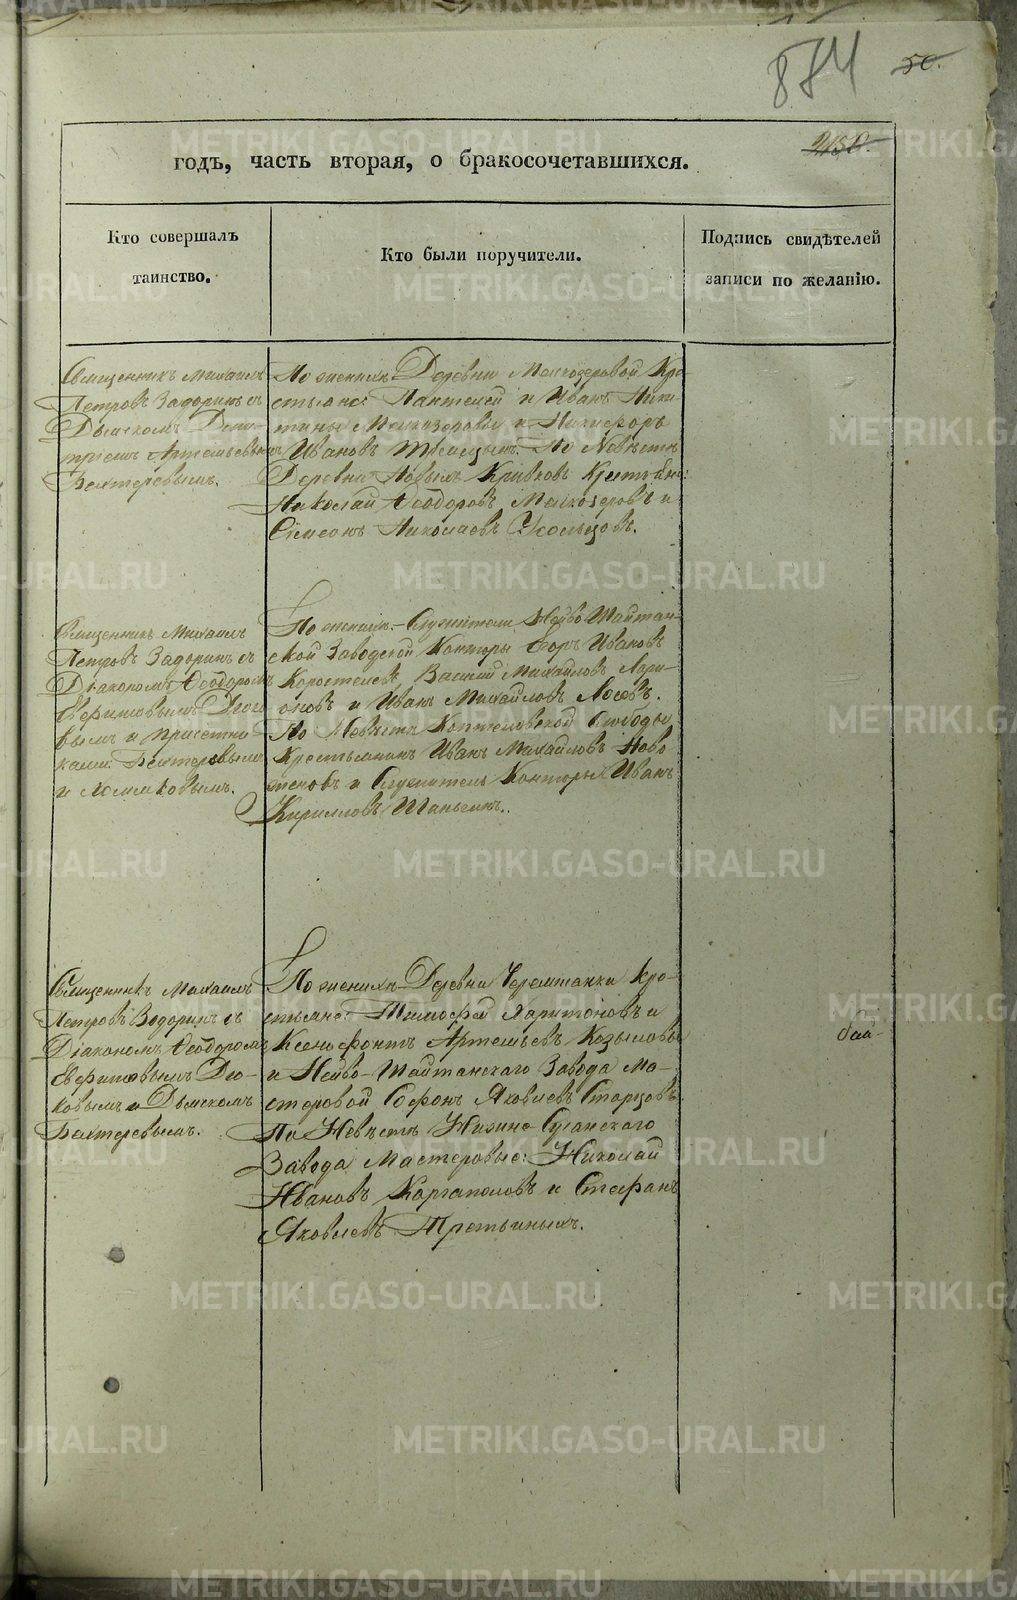 874
50.
годъ, часть вторая, о бракосочетавшихся.
Кто совершалъ
таинство.
Кто были поручители.
Подпись свидѣтелей
записи по желанію.
Священникъ Михаилъ
Петровъ Задоринъ съ
Дьячкомъ Дими-
тріемъ Артемьевымъ
Бехтеревымъ.
По женихѣ Деревни Молгозеровой Кре-
стьяне: Пантелей и Иванъ Ники-
тины и Никифоръ
Ивановъ По Невѣстѣ
Деревни Новыхъ Кривковъ Крестьяне:
Николай Ѳеодоровъ и
Симеонъ Николаевъ Скольцовъ.
Священникъ Михаилъ
Петровъ Задоринъ съ
Діакономъ Ѳеодоромъ
Еверитовымъ Дья-
вымъ и причетни-
ками: Бехтеревымъ
и
По женихѣ: Служители Нейво-Шайтан-
ской Заводской Конторы Егоръ Ивановъ
Коростелевъ, Василій Михайловъ Лари-
оновъ и Иванъ Михайловъ Лосевъ.
По Невѣстѣ Коптеловской Слободы
Крестьянинъ Иванъ Михайловъ Ново-
женовъ и Служитель Конторы Иванъ
Кирилловъ Шаньгинъ.
Священникъ Михаилъ
Петровъ Задоринъ съ
Діакономъ Ѳеодоромъ
Еверитовымъ Дья-
ковымъ и Дьячкомъ
Бехтеревымъ.
По женихѣ Деревни Черемшанки Кре-
стьяне: Тимофей Харитоновъ и
Ксенофонтъ Артемьевъ Козыловы
и Нейво-Шайтанскаго Завода Ма-
стеровой Софонъ Яковлевъ Старцовъ.
По Невѣстѣ Нижне Сусанскаго
Завода Мастеровые: Николай
Ивановъ Каргаполовъ и Стефанъ
Яковлевъ Третьиныхъ.
METRIKI.GASO-URAL.RU